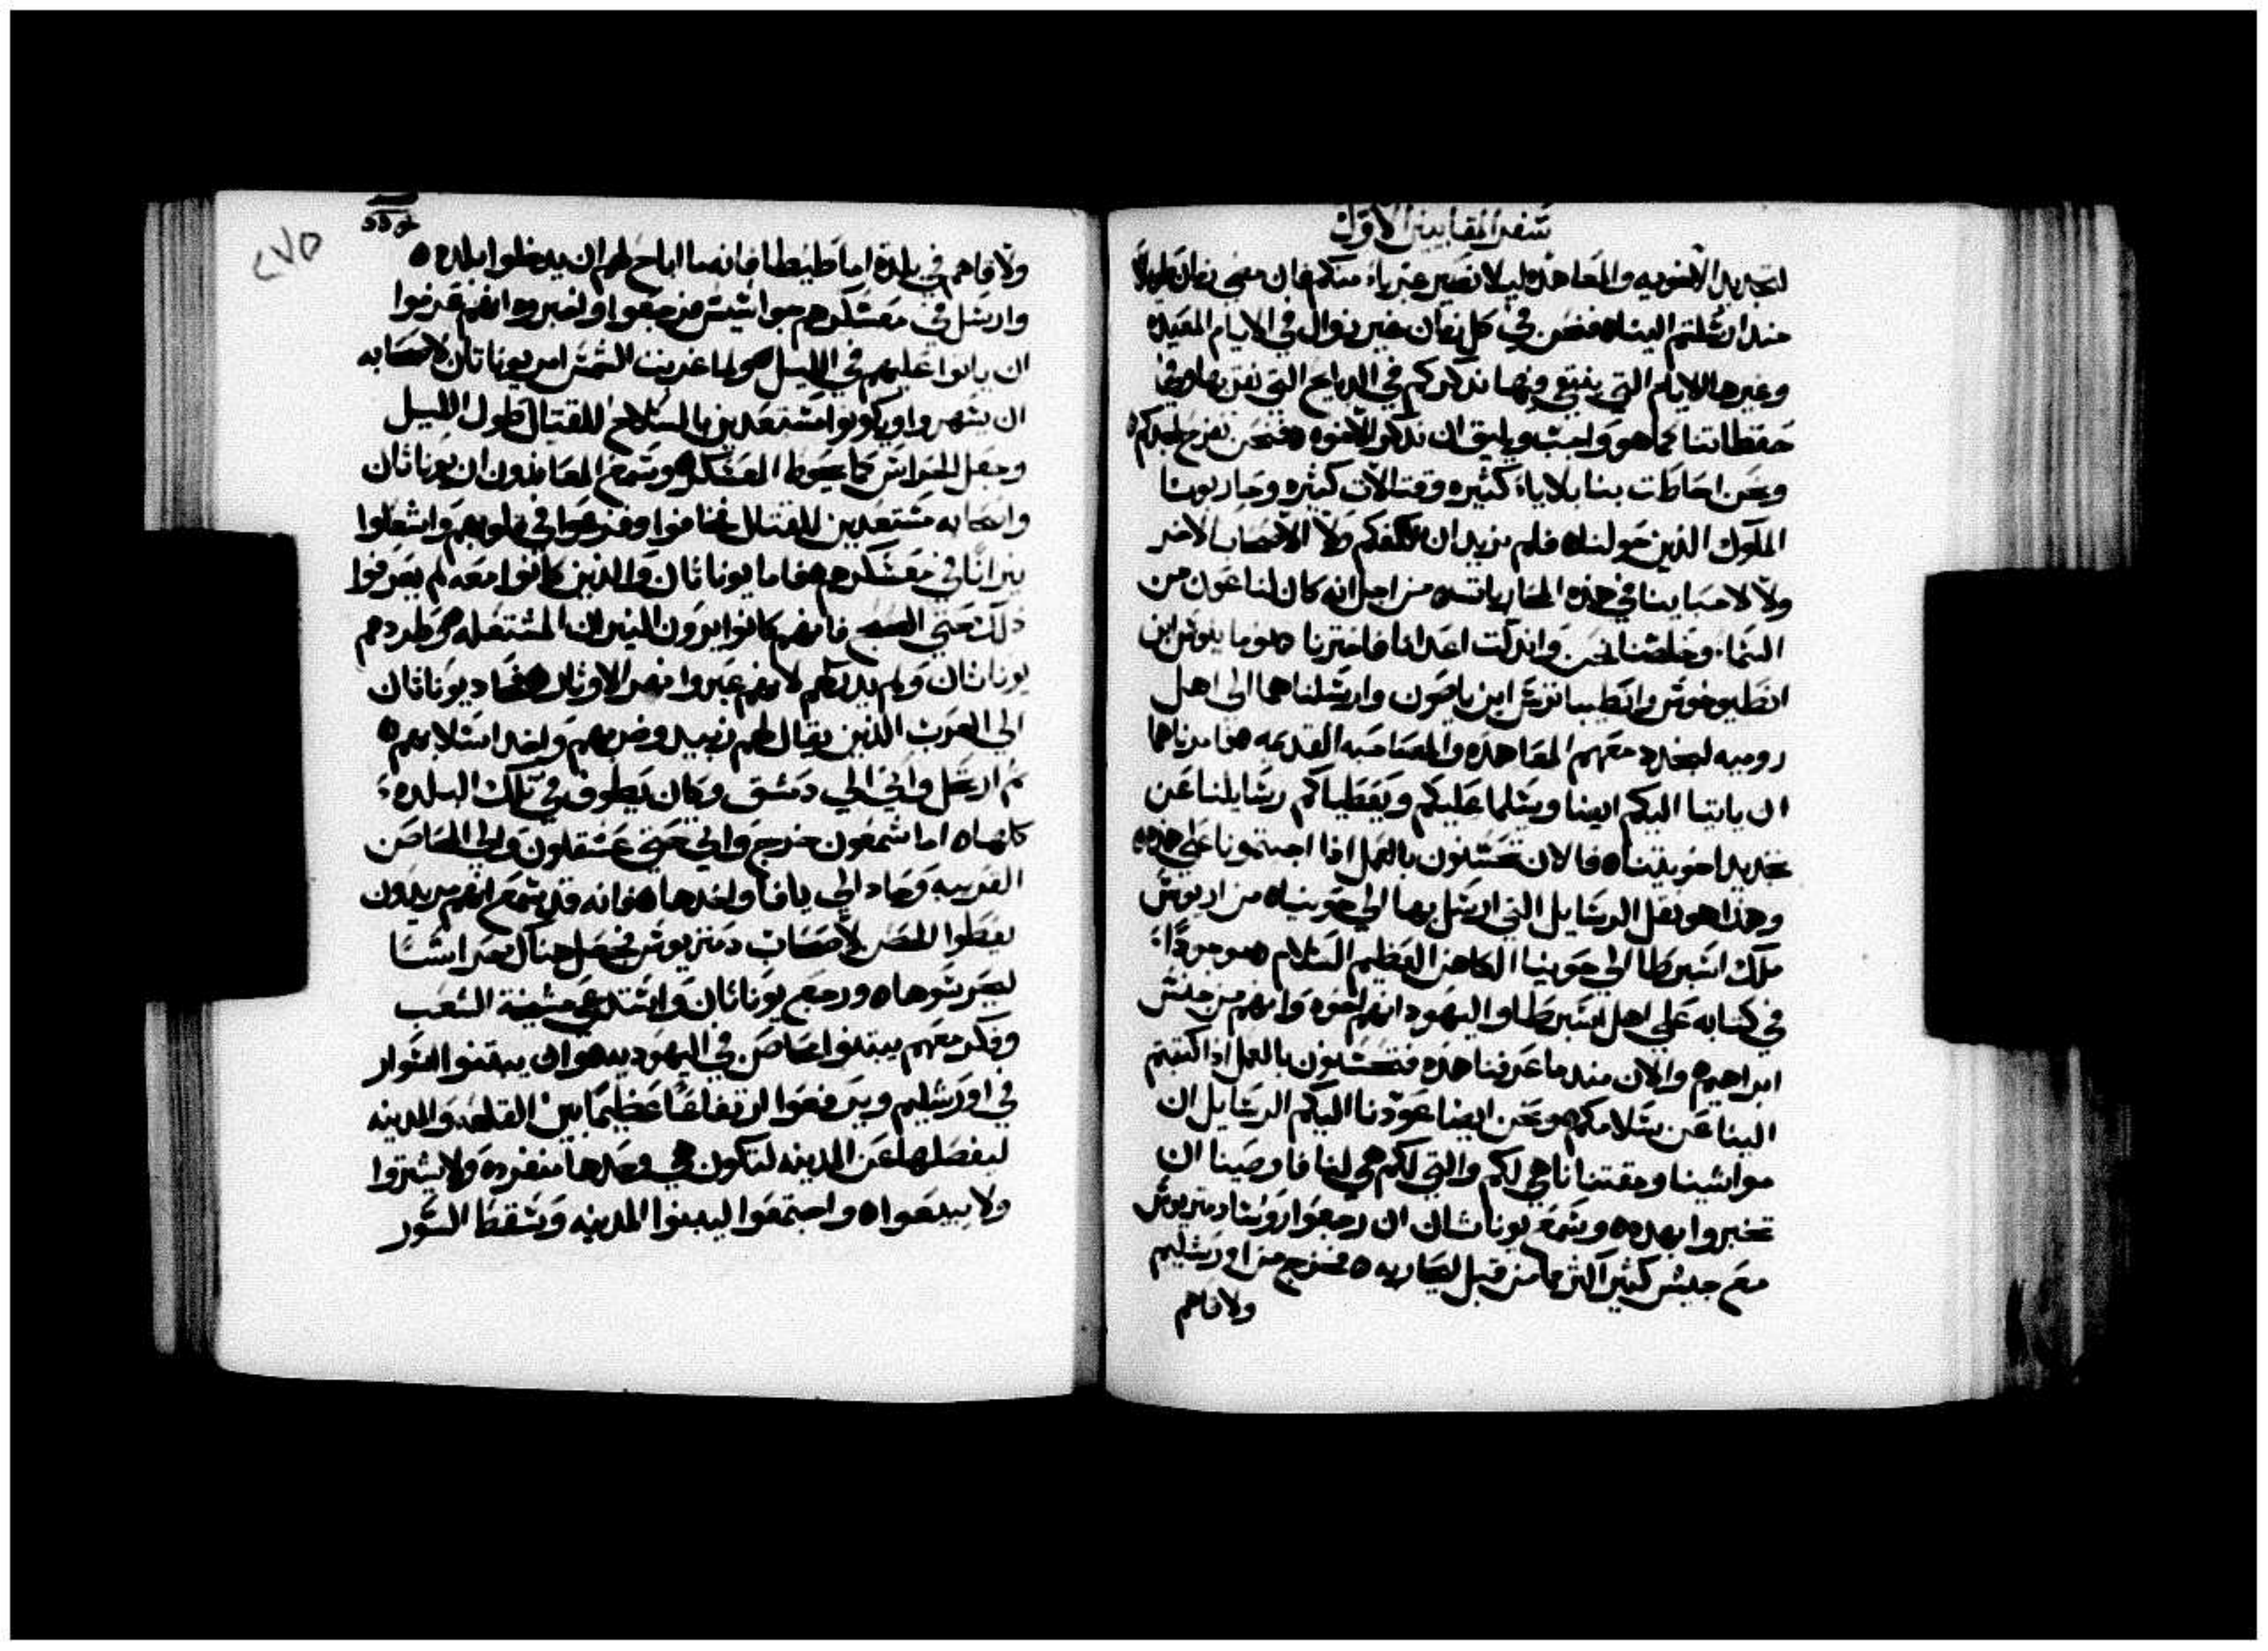 سفر المقابيين الاول
لتجديد الاخويه والمعاهده ليلا نصير غرباء منكم فان مضى زمان طويلا
منذ ارسلتم الينا ه فنحن في كل زمان بغير زوال في الايام المعيده
وغيرها الايام التي ينبغي فيها نذكركم في الدبايح التي نقربها وفي
حفظاتنا كما هو واجب ويليق ان نذكر الاخوه ه فنحن نفرح لمجدكم ه
ونحن احاطت بنا بلاياء كثيره وقتالات كثيره وحاربونا
الملوك الذين حولنا ه فلم نريد ان نكلفكم ولا الاصحاب الاخر
ولا لاحبابنا في هذه المحاربات ه من اجل انه كان لنا عون من
السماء وخلصنا نحن واندلت اعدانا فاخترنا نوماينوس ابن
انطيوخوس وانطيباترس ابن ياصون وارسلناهما الى اهل
روميه لنجدد معهم المعاهده والمصاحبه القديمه ه فامرناهما
ان ياتيا اليكم ايضا ويسلما عليكم ويعطياكم رسايلنا عن
تجديد اخويتنا ه فالان تحسنون بالعمل اذا اجبتمونا على هذه ه
وهذا هو نقل الرسايل التي ارسل بها الى حونيا ه من اريوس
ملك اسبرطا الى حونيا الكاهن العظيم السلام ه موجودا
في كتابه على اهل اسبرطا واليهود انهم اخوه وانهم من جنس
ابراهيم ه والان منذ ما عرفنا هذه فتحسنون بالعمل اذا كتبتم
الينا عن سلامكم ه ونحن ايضا عودنا اليكم الرسايل ان
مواشينا ومقتنانا هي لكم والتي لكم هي لنا فاوصينا ان
تخبروا بهده ه وسمع يوناثان ان رجعوا روسا دمتريوس
مع جيش كثير اكثر مما من قبل ليحاربه ه فخرج من اورشليم
ولاقاهم
٢٧٥
ولاقاهم في بلدة اماطيطا فانه ما اباح لهم ان يدخلوا بلده ه
وارسل في معسكرهم جواسيس فرجعوا واخبروه انهم عزموا
ان ياتوا عليهم في الليل ه ولما غربت الشمس امر يوناتان لاصحابه
ان يسهروا ويكونوا مستعدين بالسلاح للقتال طول الليل
وجعل الحراس كما يحوط المعسكر ه وسمع المعاندون ان يوناثان
واصحابه مستعدين للقتال فخافوا وفزعوا في قلوبهم واشعلوا
نيرانا في معسكرهم ه فاما يوناثان والذين كانوا معه لم يعرفوا
ذلك حتى الصبح فانهم كانوا يرون النيران المشتعله ه وطردهم
يوناثان ولم يدركهم لانهم عبروا نهر الاوثار ه فحاد يوناثان
الى العرب الذين يقال لهم زبيد وضربهم واخد اسلابهم ه
ثم ارتحل واتى الى دمشق وكان يطوف في تلك البلده
كلها ه اما شمعون خرج واتى حتى عسقلون والى المحاصن
القريبه وحاد الى يافا واخدها ه فانه قد سمع انهم يريدون
يعطوا الحصن لاصحاب دمتريوس فجعل هناك حراسا
ليحرسوها ه ورجع يوناثان واستدعى مشيخة الشعب
وفكر معهم يبتنوا محاصن في اليهوديه ه وان يبتنوا السوار
في اورشليم ويرفعوا ارتفاعا عظيما بين القلعه والمدينه
ليفصلها عن المدينه لتكون هي وحدها منفرده ولا يشتروا
ولا يبيعوا ه واجتمعوا ليبنوا المدينه وسقط السور